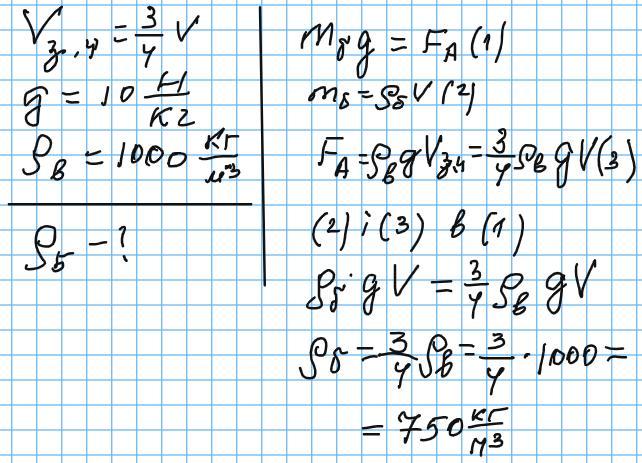 V з.ч = 3/4 V
g = 10 Н/кг
ρв = 1000 кг/м³
ρб - ?
mб g = FA (1)
mб = ρб V (2)
FA = ρв g Vз.ч = 3/4 ρв g V (3)
(2) і (3) в (1)
ρб · g V = 3/4 ρв g V
ρб = 3/4 ρв = 3/4 · 1000 =
= 750 кг/м³